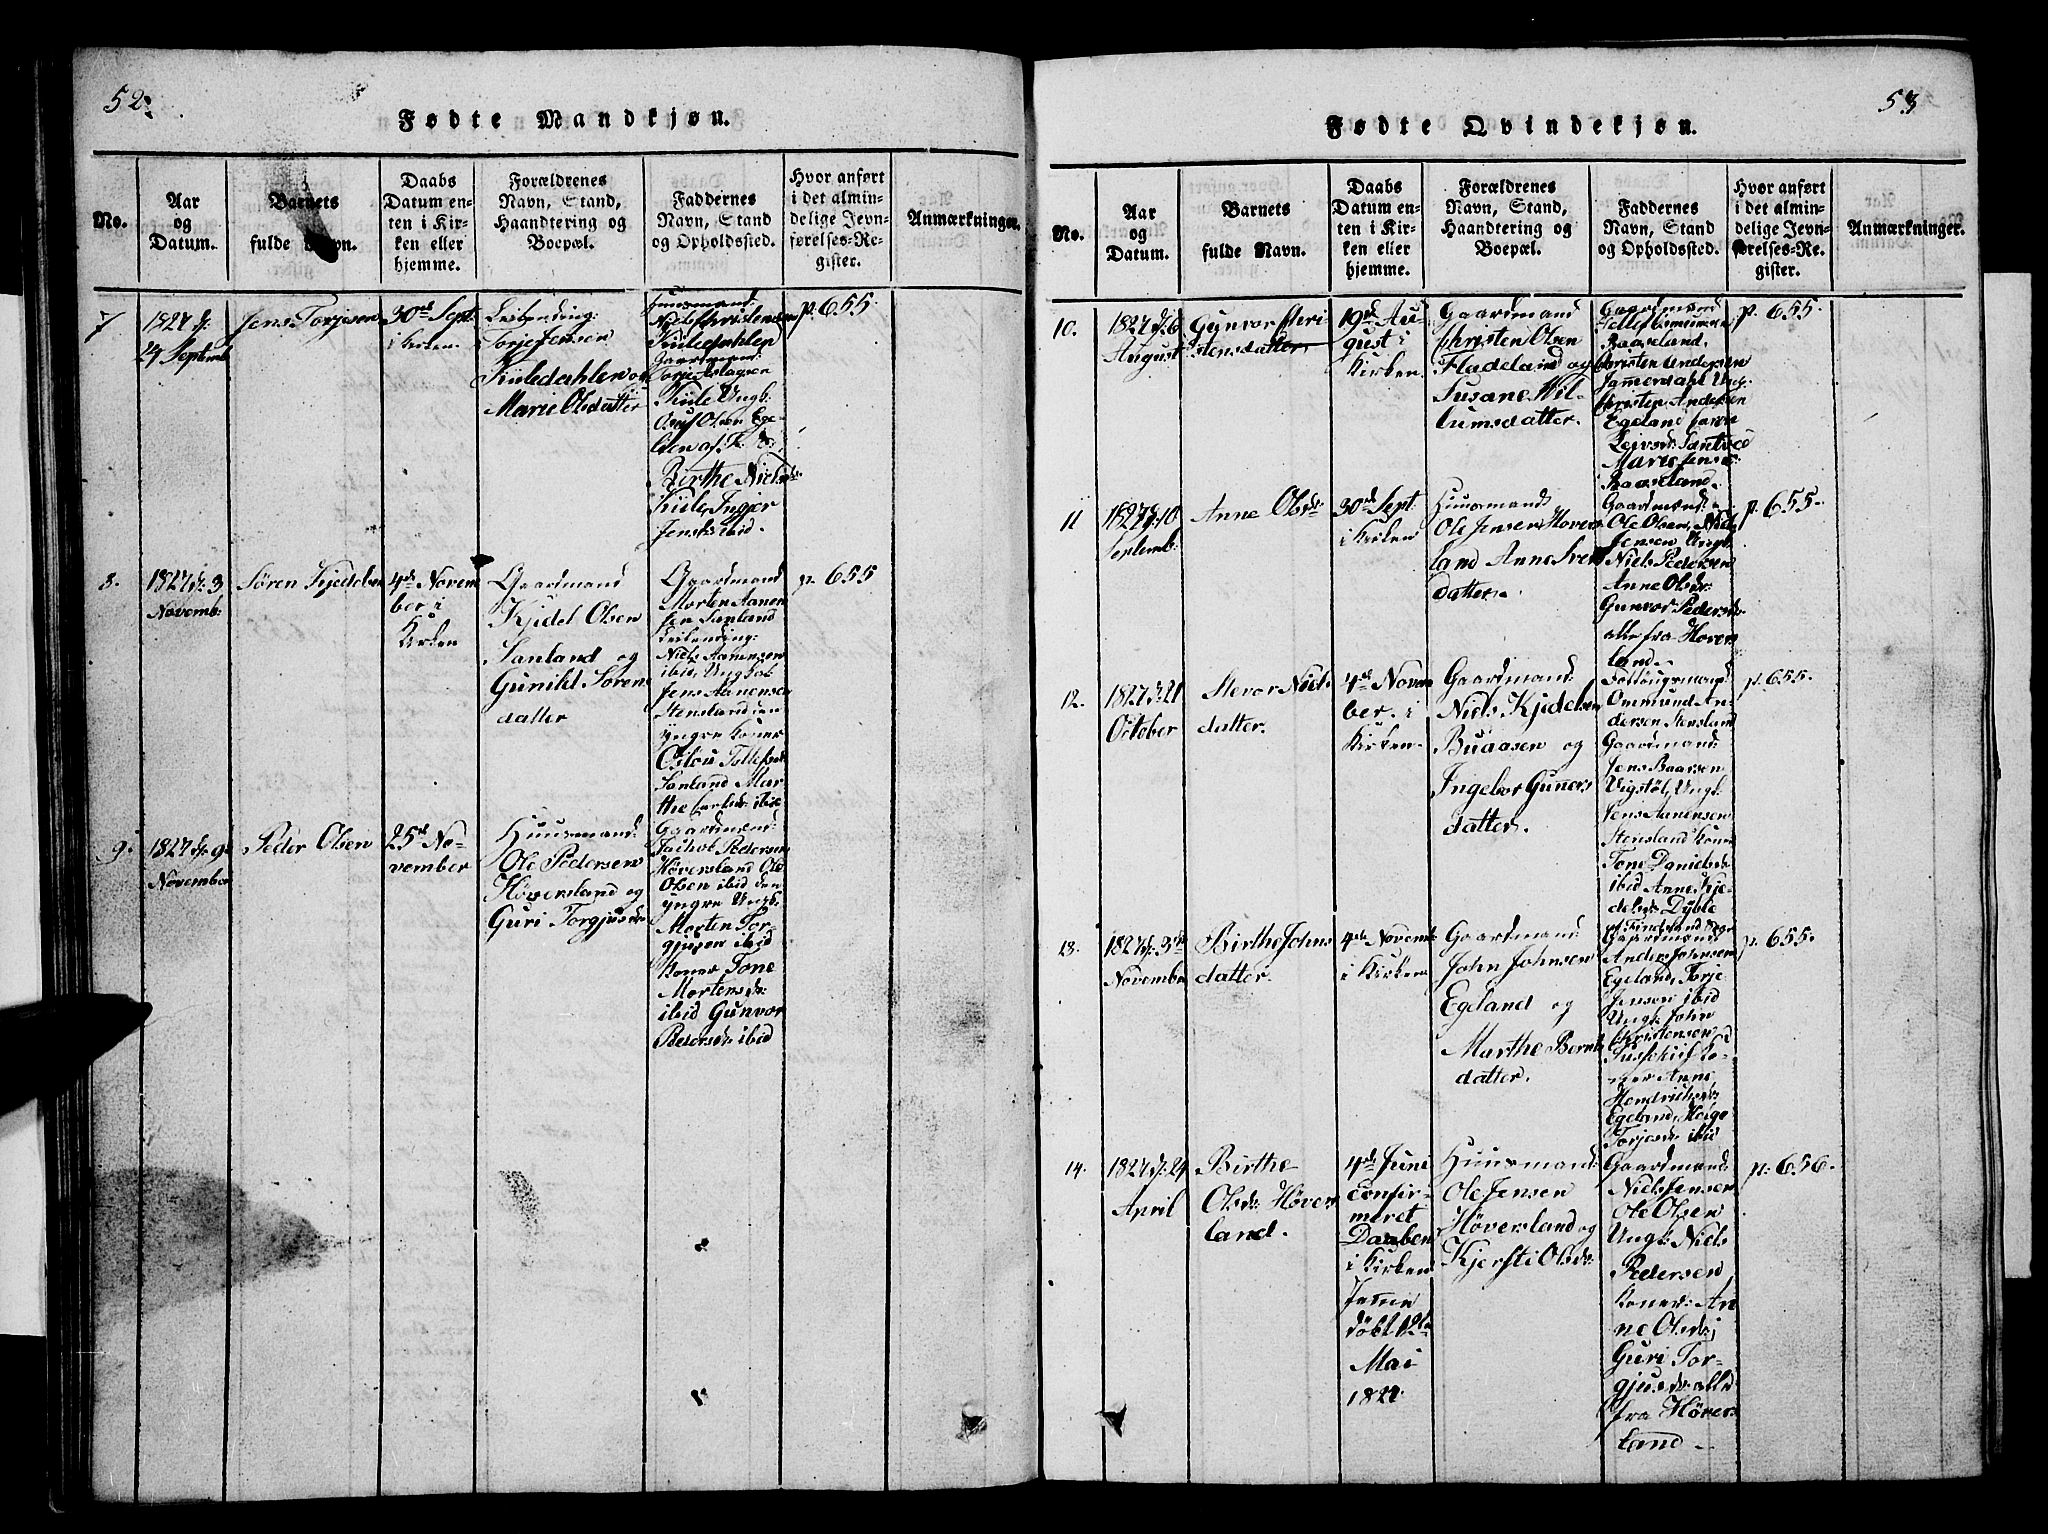 52.
Fødte Mandkjøn.
No.
Aar
og
Datum.
Barnets
fulde Navn.
Daabs
Datum en-
ten i Kir-
ken eller
hjemme.
Forældrenes
Navn, Stand,
Haandtering og
Boepæl.
Faddernes
Navn, Stand
og Opholdssted.
Hvor anført
i det almin-
delige Jevn-
førelses-Re-
gister.
Anmærkninger.
7
1827 d:
29 Septemb.
Jens Torjesen
30te Sept:
i Kirken.
Leilending:
Torje Jensen
Kiiledahlen og
Marie Olsdatter
Huusmand:
Niels Christensen
Kiiledahlen
Gaardmand:
Torje Aslagsen
Kiile Ungk:
Oluf Olsen Ege-
Birthe Niels
Kiile, Ingjer
Jensdr ibid.
p. 655.
8.
1827 d: 3
Novemb:
Søren Kjedelsen
4de Novem
ber i
Kirken
Gaardmand
Kjidel Olsen
Sanland og
Gunild Sørens
datter
Gaardmand
Morten Aanen
sen Sanland
Leilending:
Niels Aanensen
ibid, Ungkal
Jens Aanensen
Stensland den
yngre Koner
Oslou Tollefsd
Sanland Mar
the ibid
p. 655
9.
1827 d: 9
November
Peder Olsen
25de No-
vember
Huusmand:
Ole Pedersen
Høversland og
Guri Torgjusdr
Gaardmænd:
Jachob Pedersen
Høversland Ole
Olsen ibid den
yngre Ungk:
Morten Tor-
gjusen ibid
Koner Tone
Mortensdr:
ibid Gunvor
Pedersdr ibid
53
Fødte Qvindekjøn.
No.
Aar
og
Datum.
Barnets
fulde Navn.
Daabs
Datum en-
ten i Kir-
ken eller
hjemme.
Forældrenes
Navn, Stand,
Haandtering og
Boepæl.
Faddernes
Navn, Stand
og Opholdssted.
Hvor anført
i det almin-
delige Jevn-
førelses-Re-
gister.
Anmærkninger.
10.
1827 d: 6
August
Gunvor Chri
stensdatter
19de Au-
gust i
Kirken
Gaardmand
Christen Olsen
Fladeland og
Susane Wil-
lumsdatter.
Gaardmænd
Tellef Omunsen
Baaseland,
Christen Andersen
Jammerdahl Ung:
Christen Andersen
Egeland
Marie Jensd:
Baaseland.
p. 655.
11
1827 d: 10
Septemb:
Anne Olsdr
30te Sept.
i Kirken
Huusmand:
Ole Jensen Hovers
land Anne Sven
datter.
Gaardmænd:
Ole Olsen, Niels
Jensen Ungk:
Niels Pedersen
Anne Olsdr:
Gunvor Pedersdr
alle fra Hovers
land.
p. 655.
12.
1827 d: 21
October
Stevor Niels
datter.
4de Novem
ber. i
Kirken.
Gaardmand:
Niels Kjedelsen
Buaasen og
Ingebor Guners
datter.
Ommund An-
dersen Stensland
Gaardmand:
Jens Baarsen
Vigstøl, Ungk:
Jens Aanensen
Stensland Koner
Tone Danielsdr
ibid Anne Kje-
delsdr Dyble
p. 655.
13.
1827 d: 3die
November
Birthe Johns
datter.
4de Novemb
i Kirken
Gaardmand:
John Johnsen
Egeland og
Marthe Bernts
datter.
Gaardmænd
Anders Johnsen
Egeland, Torje
Jensen ibid
Ungk: John
Christensen
Koner Anne
Hendrichsdr
Egeland, Helge
Torjesdr ibid
p. 655.
14.
1827 d: 24
April
Birthe
Olsdr: Høvers
land.
4de Juni
confir-
meret
Daaben
i Kirken
døbt 12te
Mai
1827.
Huusmand:
Ole Jensen
Høversland og
Kjersti Olsdr
Gaardmænd:
Niels Jensen
Ole Olsen
Ungk: Niels
Pedersen
Koner: An
ne Olsdr:
Guri Tor-
gjusdr alle
fra Høvers
land.
p. 656.